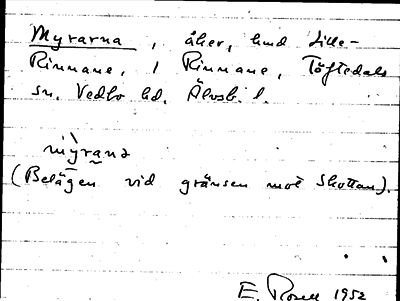 Myrarna, åker, hmd Lille-
Rinnane, 1 Rinnane, Töftedals
sn. Vedbo hd. Älvsb. l.
mỳrana
(Belägen vid gränsen mot Skottan).
E. Rosell 1952